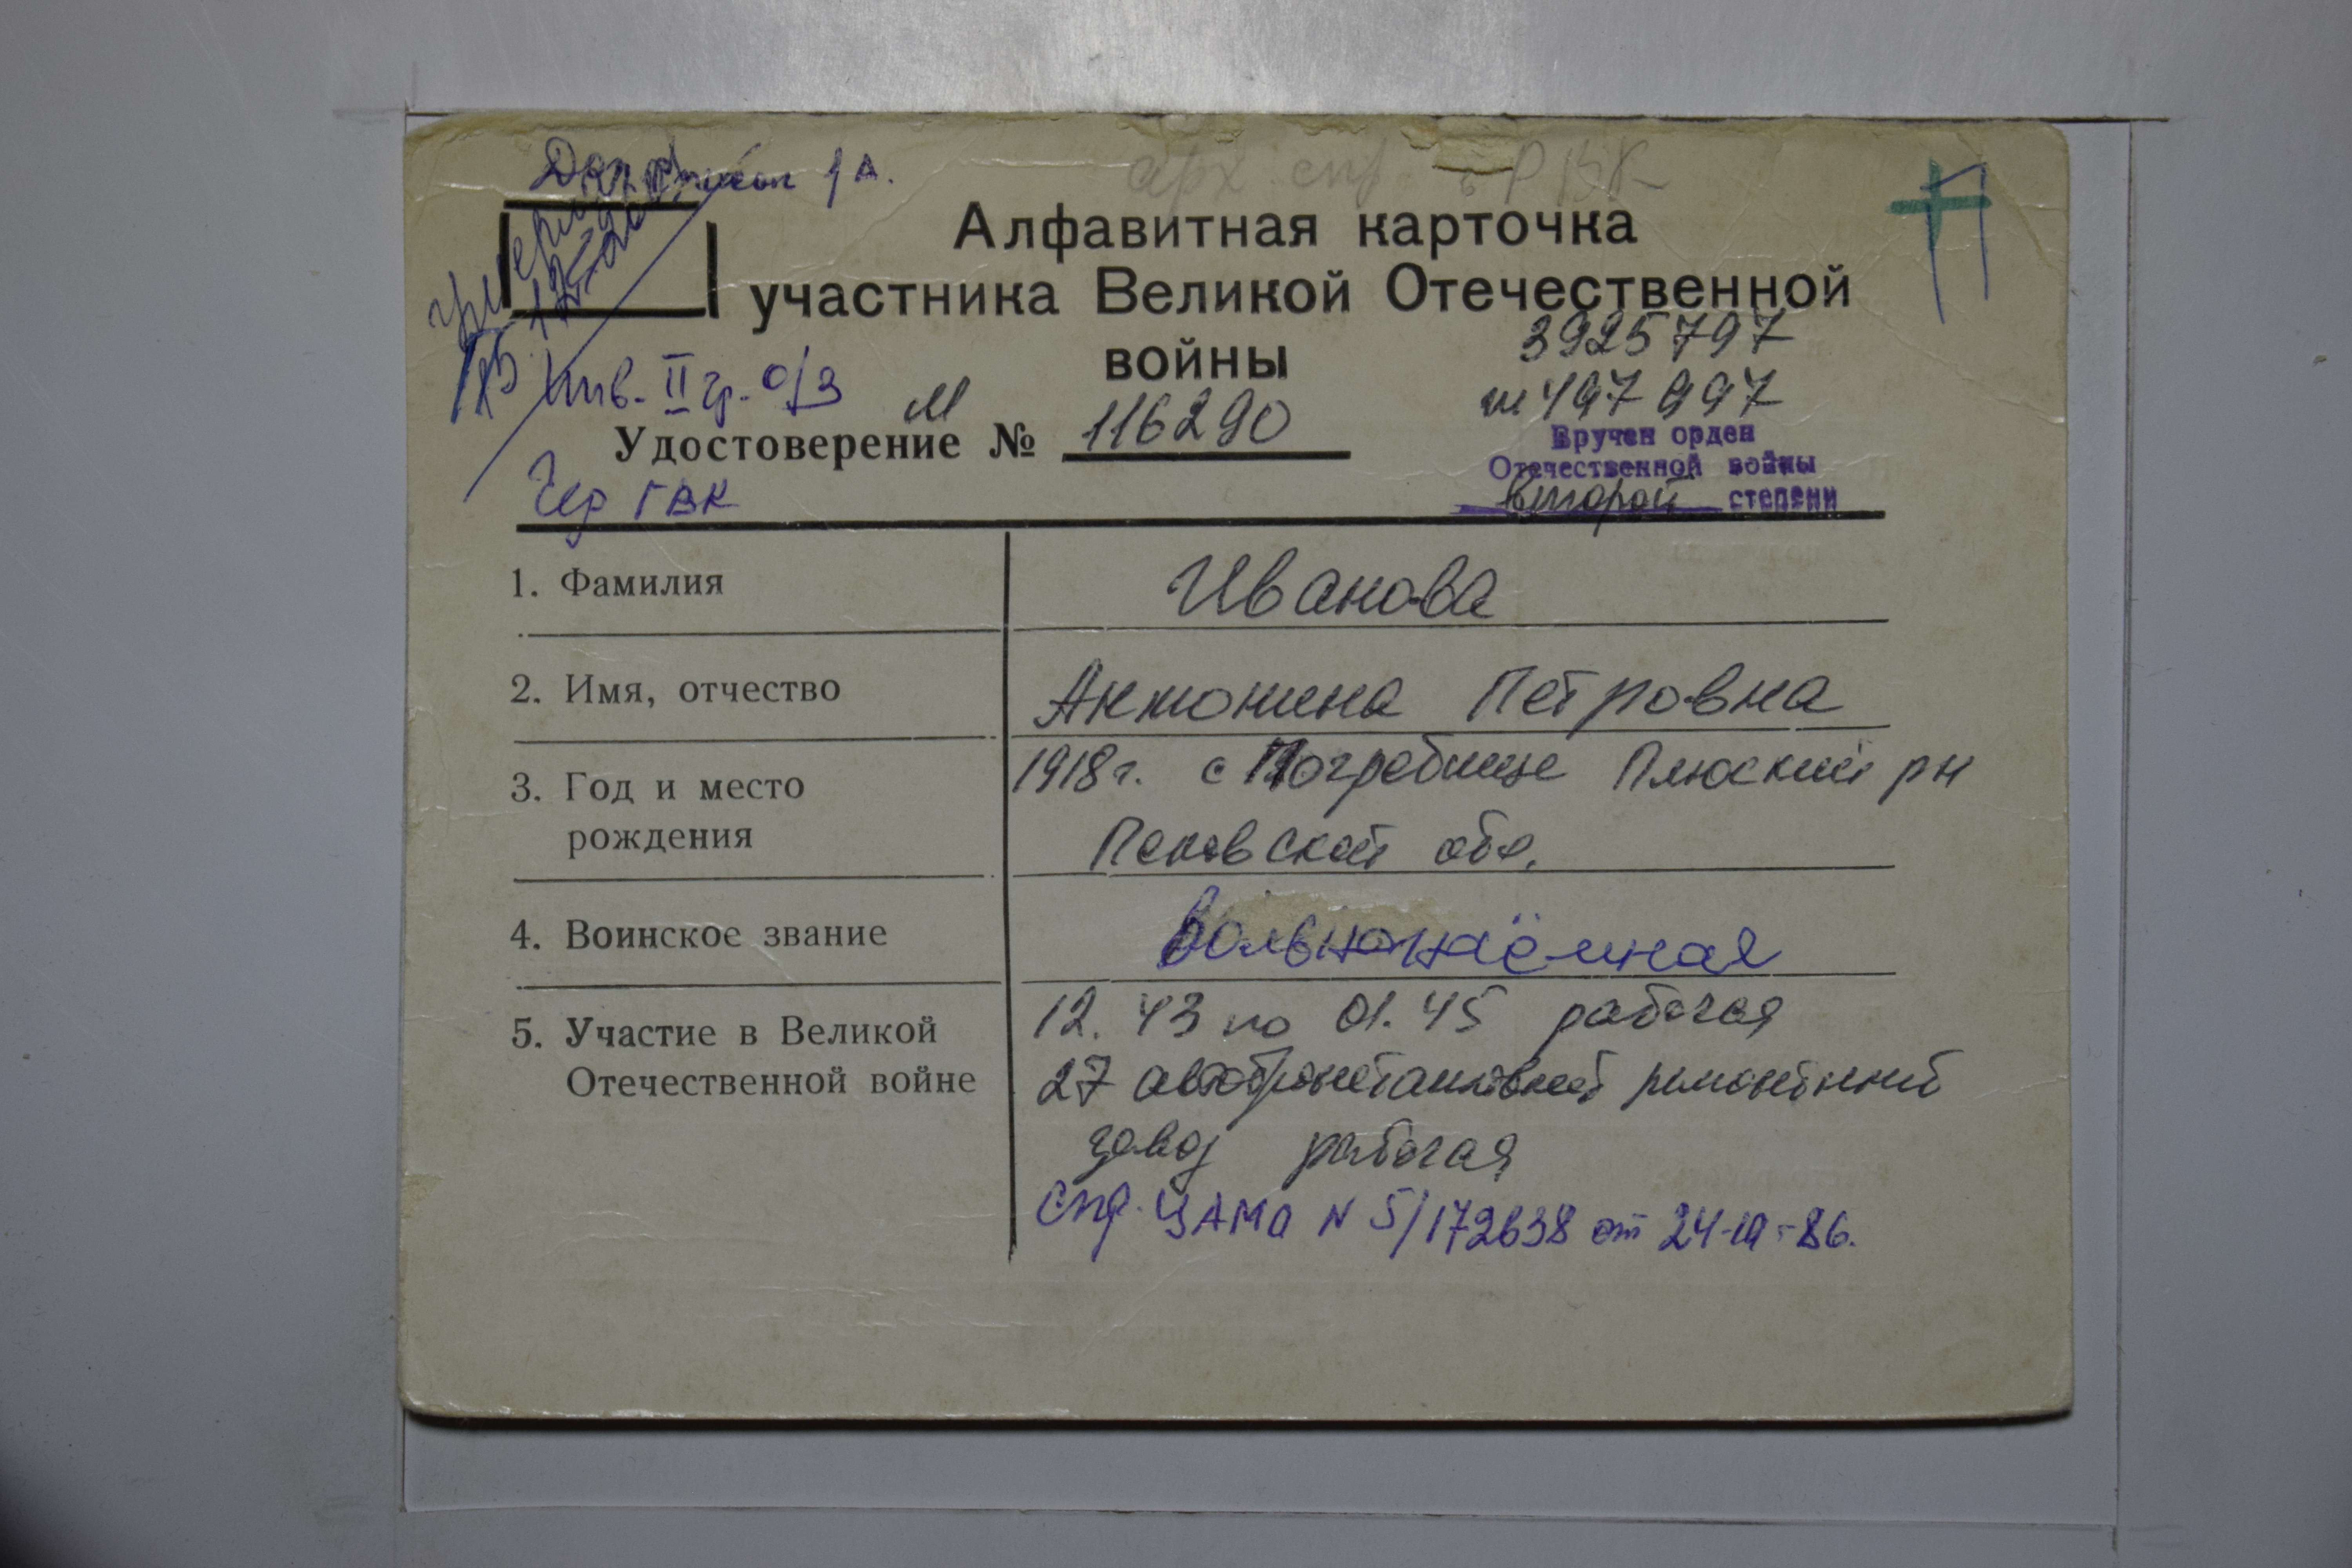 арх спр в РВК
Алфавитная карточка
участника Великой Отечественной
войны
3925797
497997
Инв. II гр. о/з
М
Удостоверение № 116290
Вручен орден
Отечественной войны
второй степени
Чер ГВК
1. Фамилия Иванова
2. Имя, отчество Антонина Петровна
3. Год и место 1918 г. с Погребище Плюский рн
рождения Псковской обл.
4. Воинское звание Вольнонаёмная
5. Участие в Великой 12. 43 по 01. 45 рабочая
Отечественной войне 27 автобронетанковый ремонтный
завод рабочая
Спр. ЦАМО N 5/172638 от